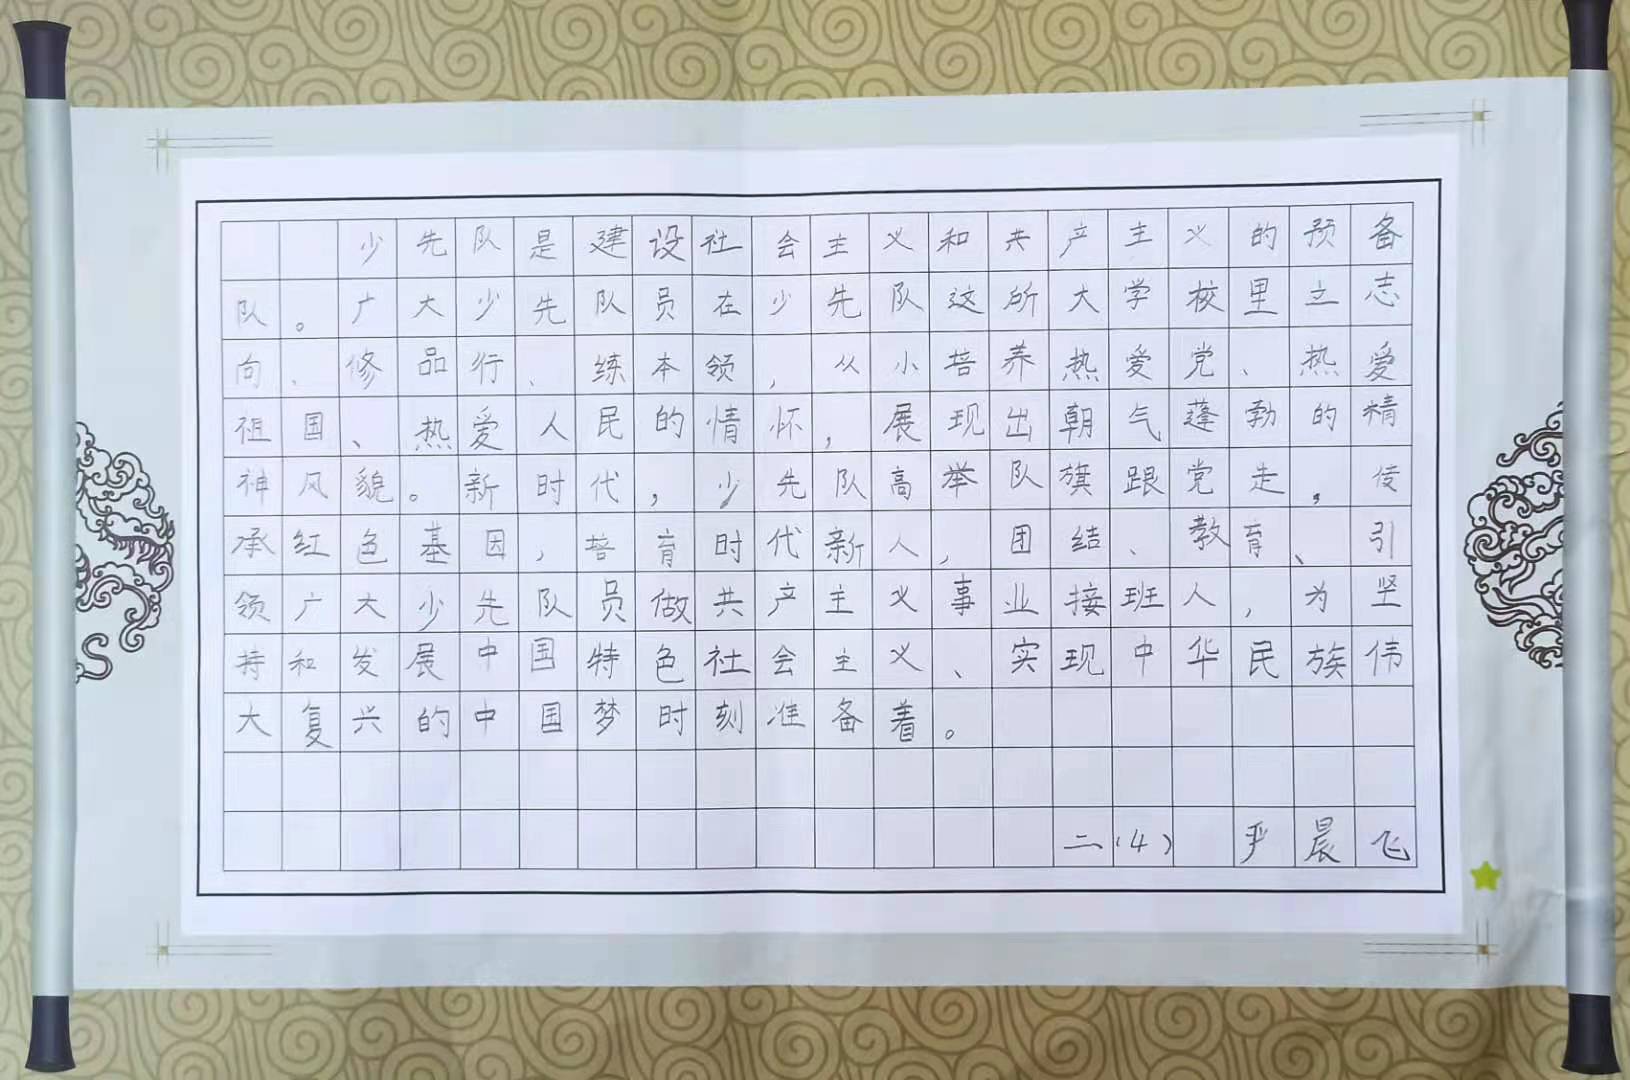 少先队是建设社会主义和共产主义的预备
队。广大少先队员在少先队这所大学校里立志
向、修品行、练本领，从小培养热爱党、热爱
祖国、热爱人民的情怀，展现出朝气蓬勃的精
神风貌。新时代，少先队高举队旗跟党走，传
承红色基因，培育时代新人，团结、教育、引
领广大少先队员做共产主义事业接班人，为坚
持和发展中国特色社会主义、实现中华民族伟
大复兴的中国梦时刻准备着。
二(4) 严晨飞